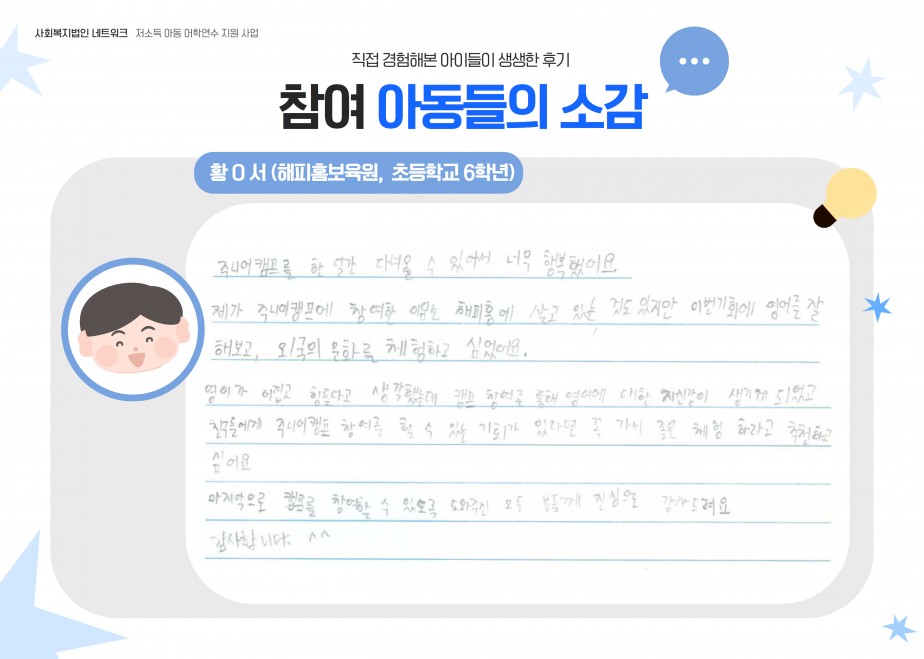 사회복지법인 네트워크 저소득 아동 어학연수 지원 사업
직접 경험해본 아이들이 생생한 후기
참여 아동들의 소감
황 O 서 (해피홈보육원, 초등학교 6학년)
주니어캠프를 한 달간 다녀올 수 있어서 너무 행복했어요.
제가 주니어캠프에 참여한 이유는 해피홈에 살고 있는 것도 있지만 이번기회에 영어를 잘
해보고, 외국의 문화를 체험하고 싶었어요.
영어가 어렵고 힘들다고 생각했는데 캠프 참여를 통해 영어에 대한 자신감이 생기게 되었고
친구들에게 주니어캠프 참여를 할 수 있는 기회가 있다면 꼭 가서 좋은 체험 하라고 추천하고
싶어요
마지막으로 캠프를 참여할 수 있도록 도와주신 모든 분들께 진심으로 감사드려요
감사합니다. ^^